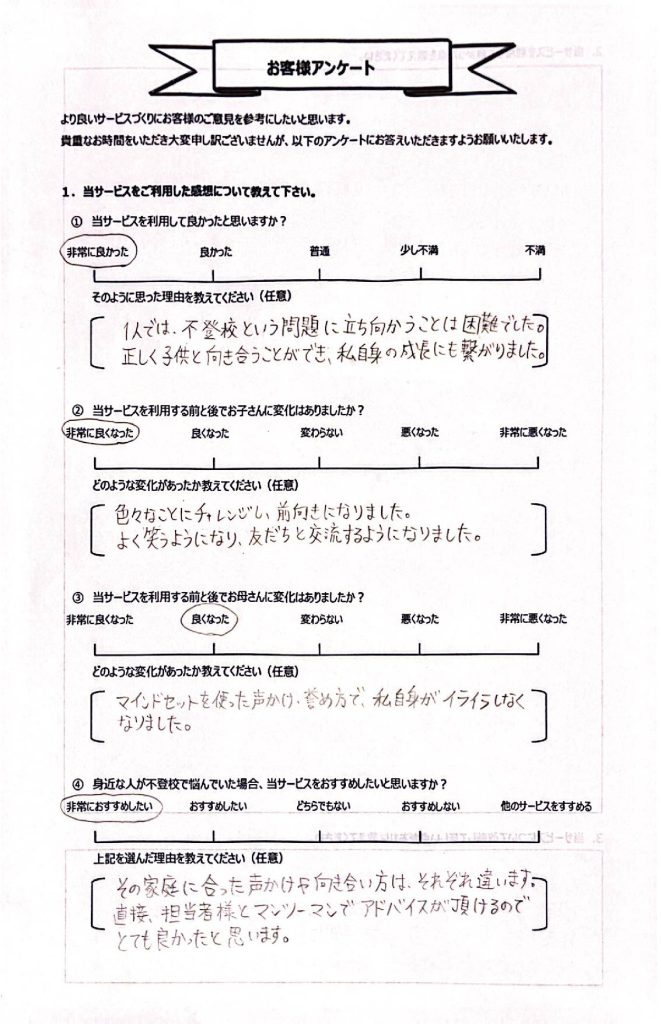 お客様アンケート
より良いサービスづくりにお客様のご意見を参考にしたいと思います。
貴重なお時間をいただき大変申し訳ございませんが、以下のアンケートにお答えいただきますようお願いいたします。
1．当サービスをご利用した感想について教えて下さい。
① 当サービスを利用して良かったと思いますか？
非常に良かった 良かった 普通 少し不満 不満
そのように思った理由を教えてください（任意）
1人では、不登校という問題に立ち向かうことは困難でした。
正しく子供と向き合うことができ、私自身の成長にも繋がりました。
② 当サービスを利用する前と後でお子さんに変化はありましたか？
非常に良くなった 良くなった 変わらない 悪くなった 非常に悪くなった
どのような変化があったか教えてください（任意）
色々なことにチャレンジし、前向きになりました。
よく笑うようになり、友だちと交流するようになりました。
③ 当サービスを利用する前と後でお母さんに変化はありましたか？
非常に良くなった 良くなった 変わらない 悪くなった 非常に悪くなった
どのような変化があったか教えてください（任意）
マインドセットを使った声かけ、誉め方で、私自身がイライラしなく
なりました。
④ 身近な人が不登校で悩んでいた場合、当サービスをおすすめしたいと思いますか？
非常におすすめしたい おすすめしたい どちらでもない おすすめしない 他のサービスをすすめる
上記を選んだ理由を教えてください（任意）
その家庭に合った声かけや向き合い方は、それぞれ違います。
直接、担当者様とマンツーマンでアドバイスが頂けるので
とても良かったと思います。